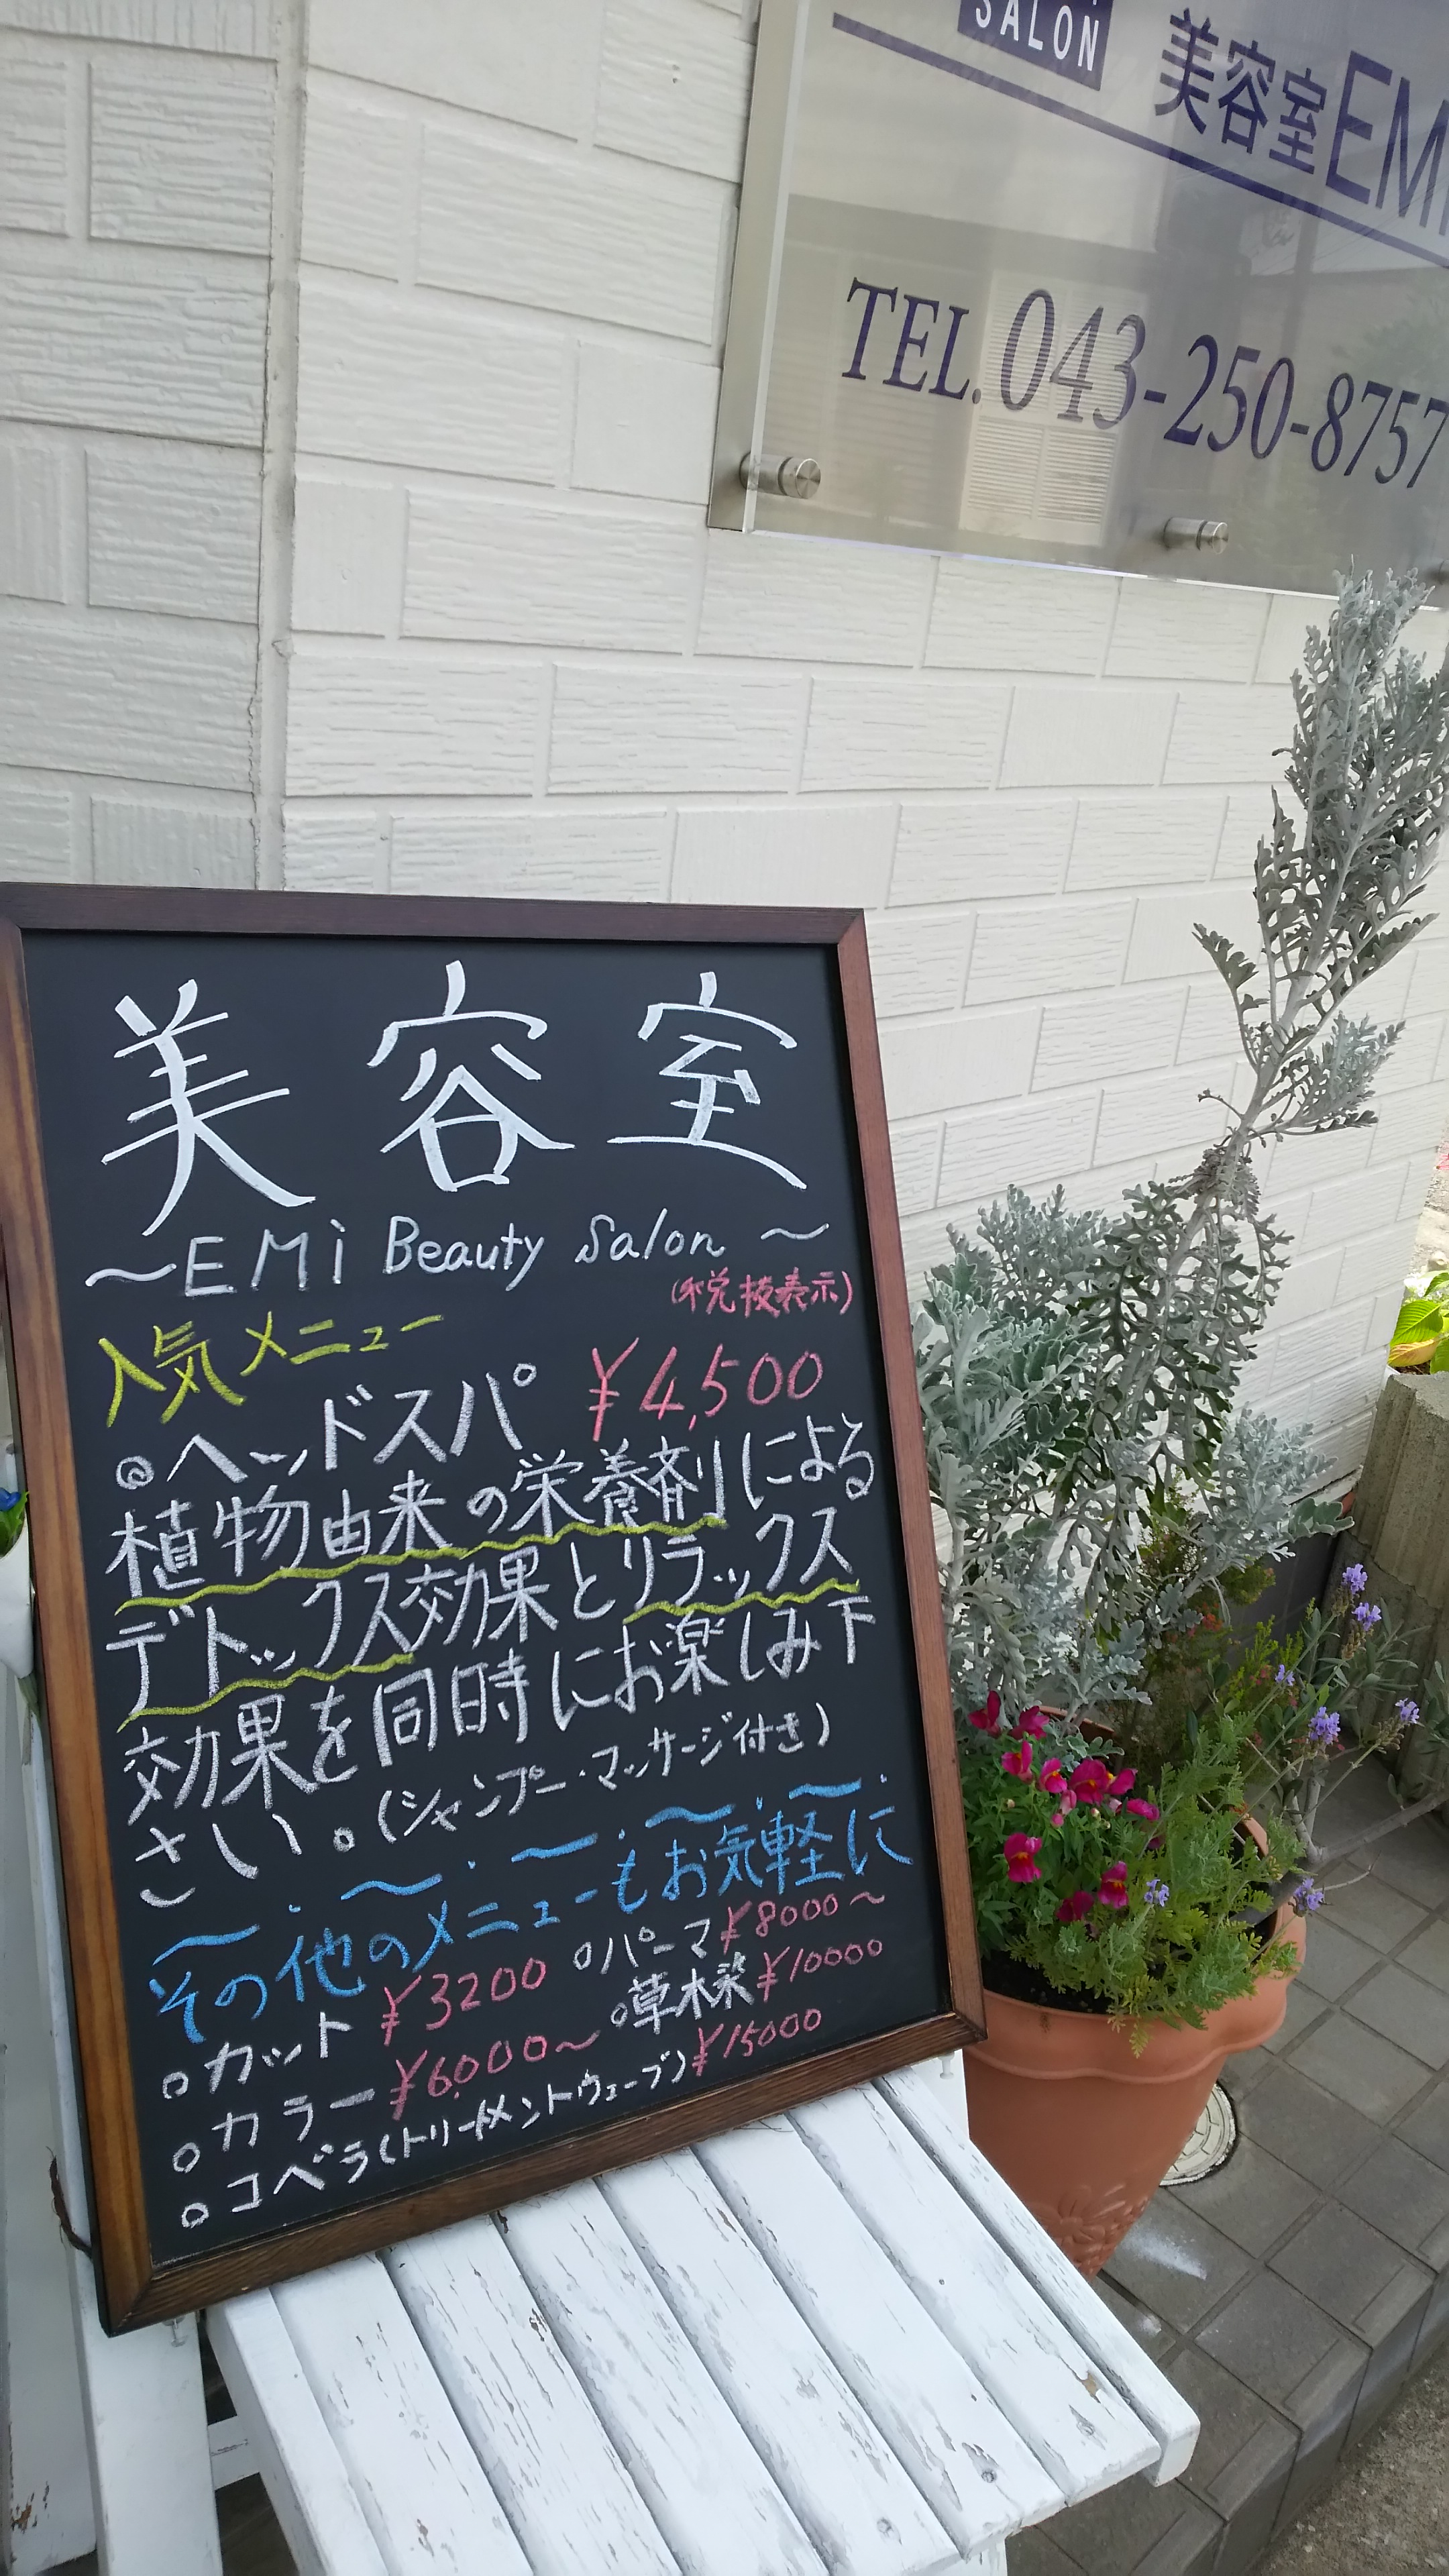 SALON
美容室EM
TEL.043-250-8757
美容室
～EMi Beauty Salon～
(税抜表示)
人気メニュー
◎ヘッドスパ ¥4,500
植物由来の栄養剤による
デトックス効果とリラックス
効果を同時にお楽しみ下
さい。(シャンプー・マッサージ付き)
その他のメニューもお気軽に
○カット ¥3200 ○パーマ¥8000～
○カラー¥6,000～ ○草木染¥10000
○コベラ(トリートメントウェーブ)¥15000